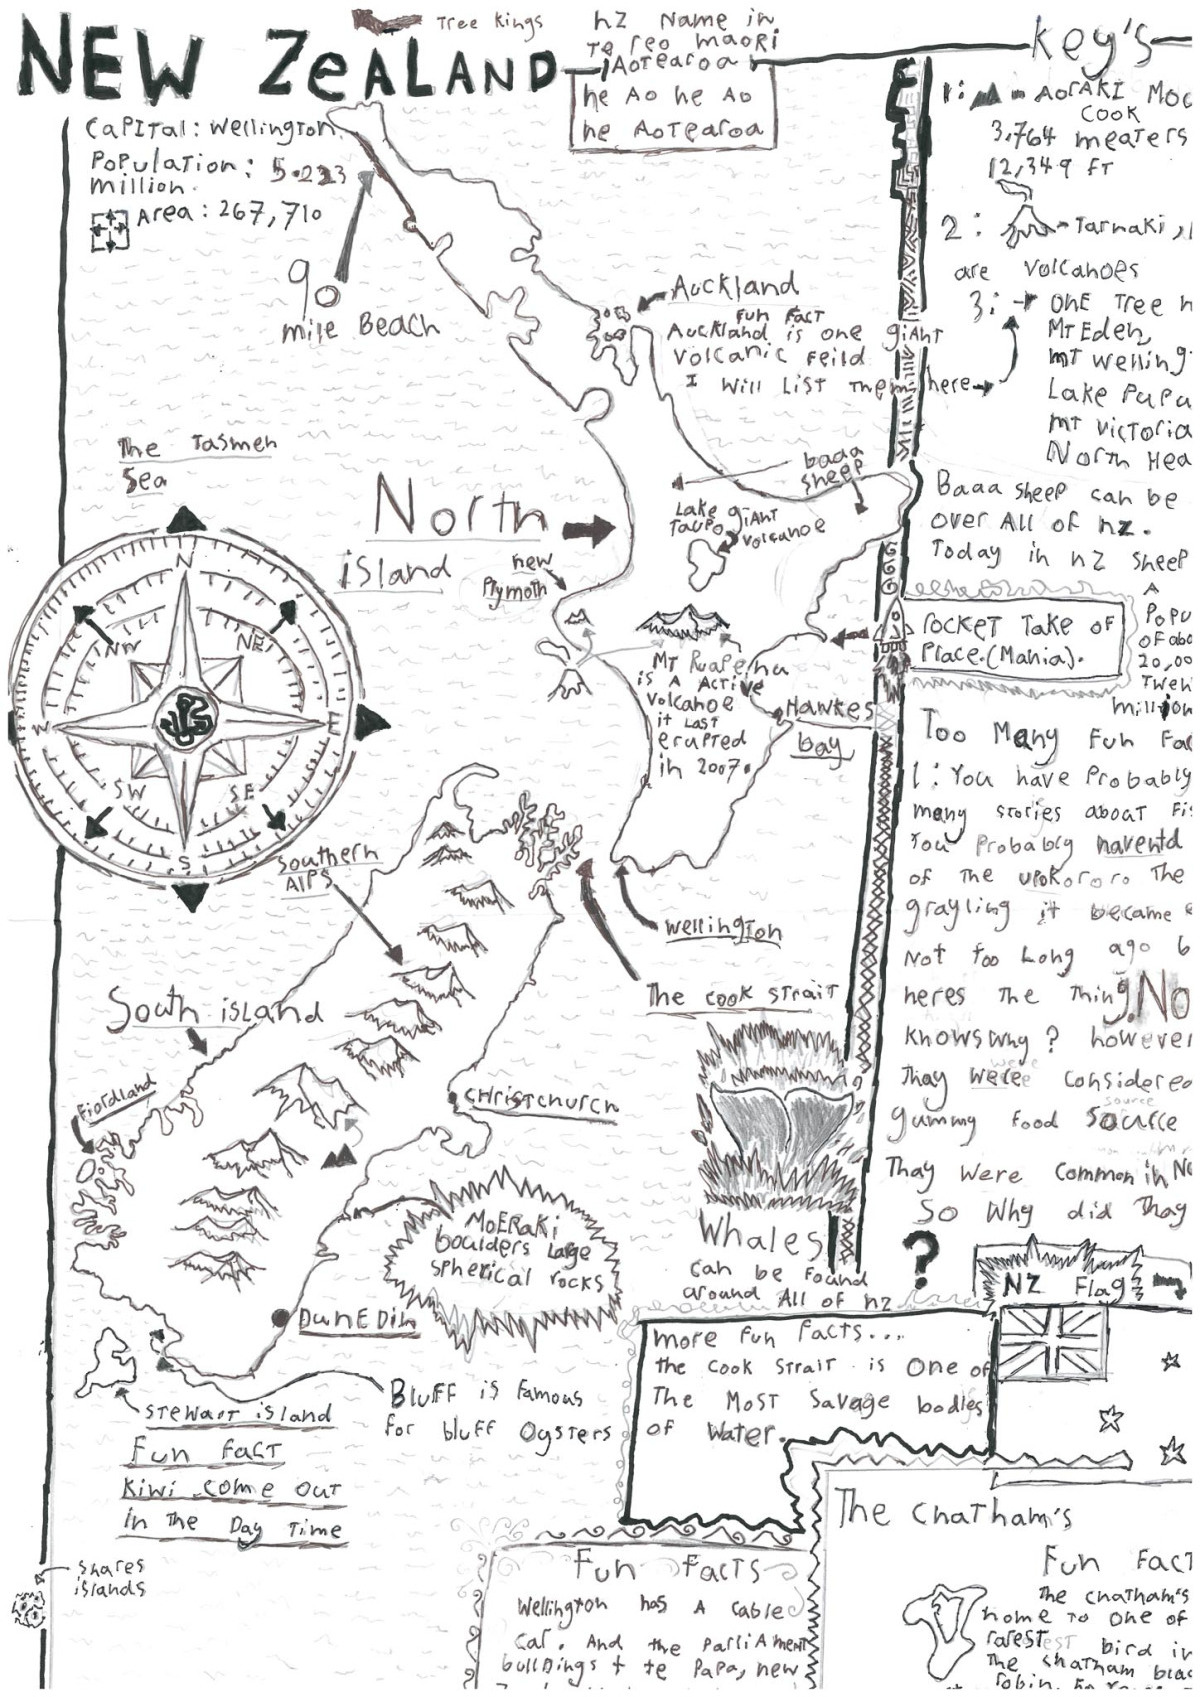 NEW ZeALAND
Tree Kings
NZ Name in
Te reo maori
Aotearoa
he Ao he Ao
he Aotearoa
CaPITal: Wellington
Population: 5.223
million.
Area: 267,710
90
mile Beach
Auckland
Fun Fact
Auckland is one giant
volcanic feild
I will List them here
The Tasmen
Sea
baaa
sheep
North
island
Lake giant
Taupo volcanoe
new
Plymoth
N
NE
E
SE
S
SW
W
NW
MT Ruapehu
is A Active
volcanoe
it Last
erupted
in 2007.
Hawkes
bay
Southern
Alps
Wellington
The cook strait
South island
Fiordland
CHristchurch
MOERaki
boulders Large
spherical rocks
DunEDin
Whales
can be found
around All of nz
Bluff is famous
for bluff Oysters
Stewart island
Fun fact
kiwi come out
in the Day Time
snares
islands
more fun facts...
the Cook Strait is one of
The Most Savage bodies
of Water.
Fun Facts
Wellington has A cable
car. And the Parliament
buildings + te Papa, new
key's
1: = AorAKI Moc
Cook
3,764 meaters
12,349 FT
2: - Tarnaki,
are volcanoes
3: → One Tree H
MT Eden,
mt welling
Lake Pupu
mt victoria
North Hea
Baaa sheep can be
over All of nz.
Today in nZ sheep
A
Popu
of abo
20,00
Twen
million
rocket Take of
Place.(Mahia).
Too Many fun Fac
1: You have Probably
many stories about Fi
You Probably havent'd
of the upokororo The
grayling it became e
Not too Long ago b
heres the thing. No
knows why? however
Thay were considered
yummy food source
Thay were common in N
So Why did Thay
?
NZ Flag
The Chatham's
Fun Fact
The chatham's
home to one of
rarest bird in
The chatham blac
robin.